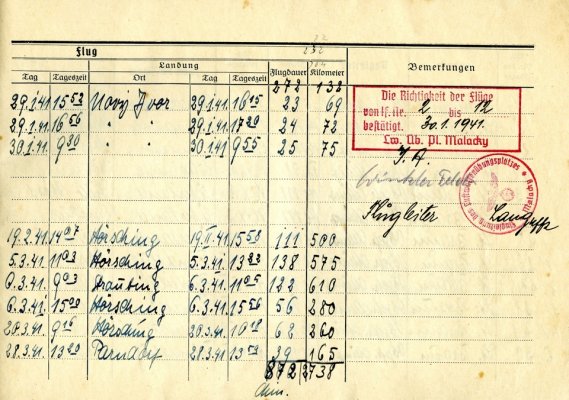 Flug
Landung
Tag Tageszeit Ort Tag Tageszeit Flugdauer Kilometer Bemerkungen
272 138
29.1.41 15 52 Novij Dvor 29.1.41 16 15 23 69
29.1.41 16 56 " " 29.1.41 17 20 24 72
30.1.41 9 30 " " 30.1.41 9 55 25 75
Die Richtigkeit der Flüge
von lf. Nr. 2 bis 12
bestätigt. 30.1.1941.
Lw. Üb. Pl. Malacky
I.A.
Flugleiter
19.2.41 14 07 Hörsching 19.II.41 15 58 111 500
5.3.41. 11 03 Hörsching 5.3.41. 13 138 575
6.3.41. 9 03 Straubing 6.3.41. 11 05 122 610
6.3.41. 15 00 Hörsching 6.3.41. 15 56 56 280
9 16 Hörsching 10 18 62 260
28.3.41. 13 20 Parndorf 28.3.41. 13 59 39 165
872 2738